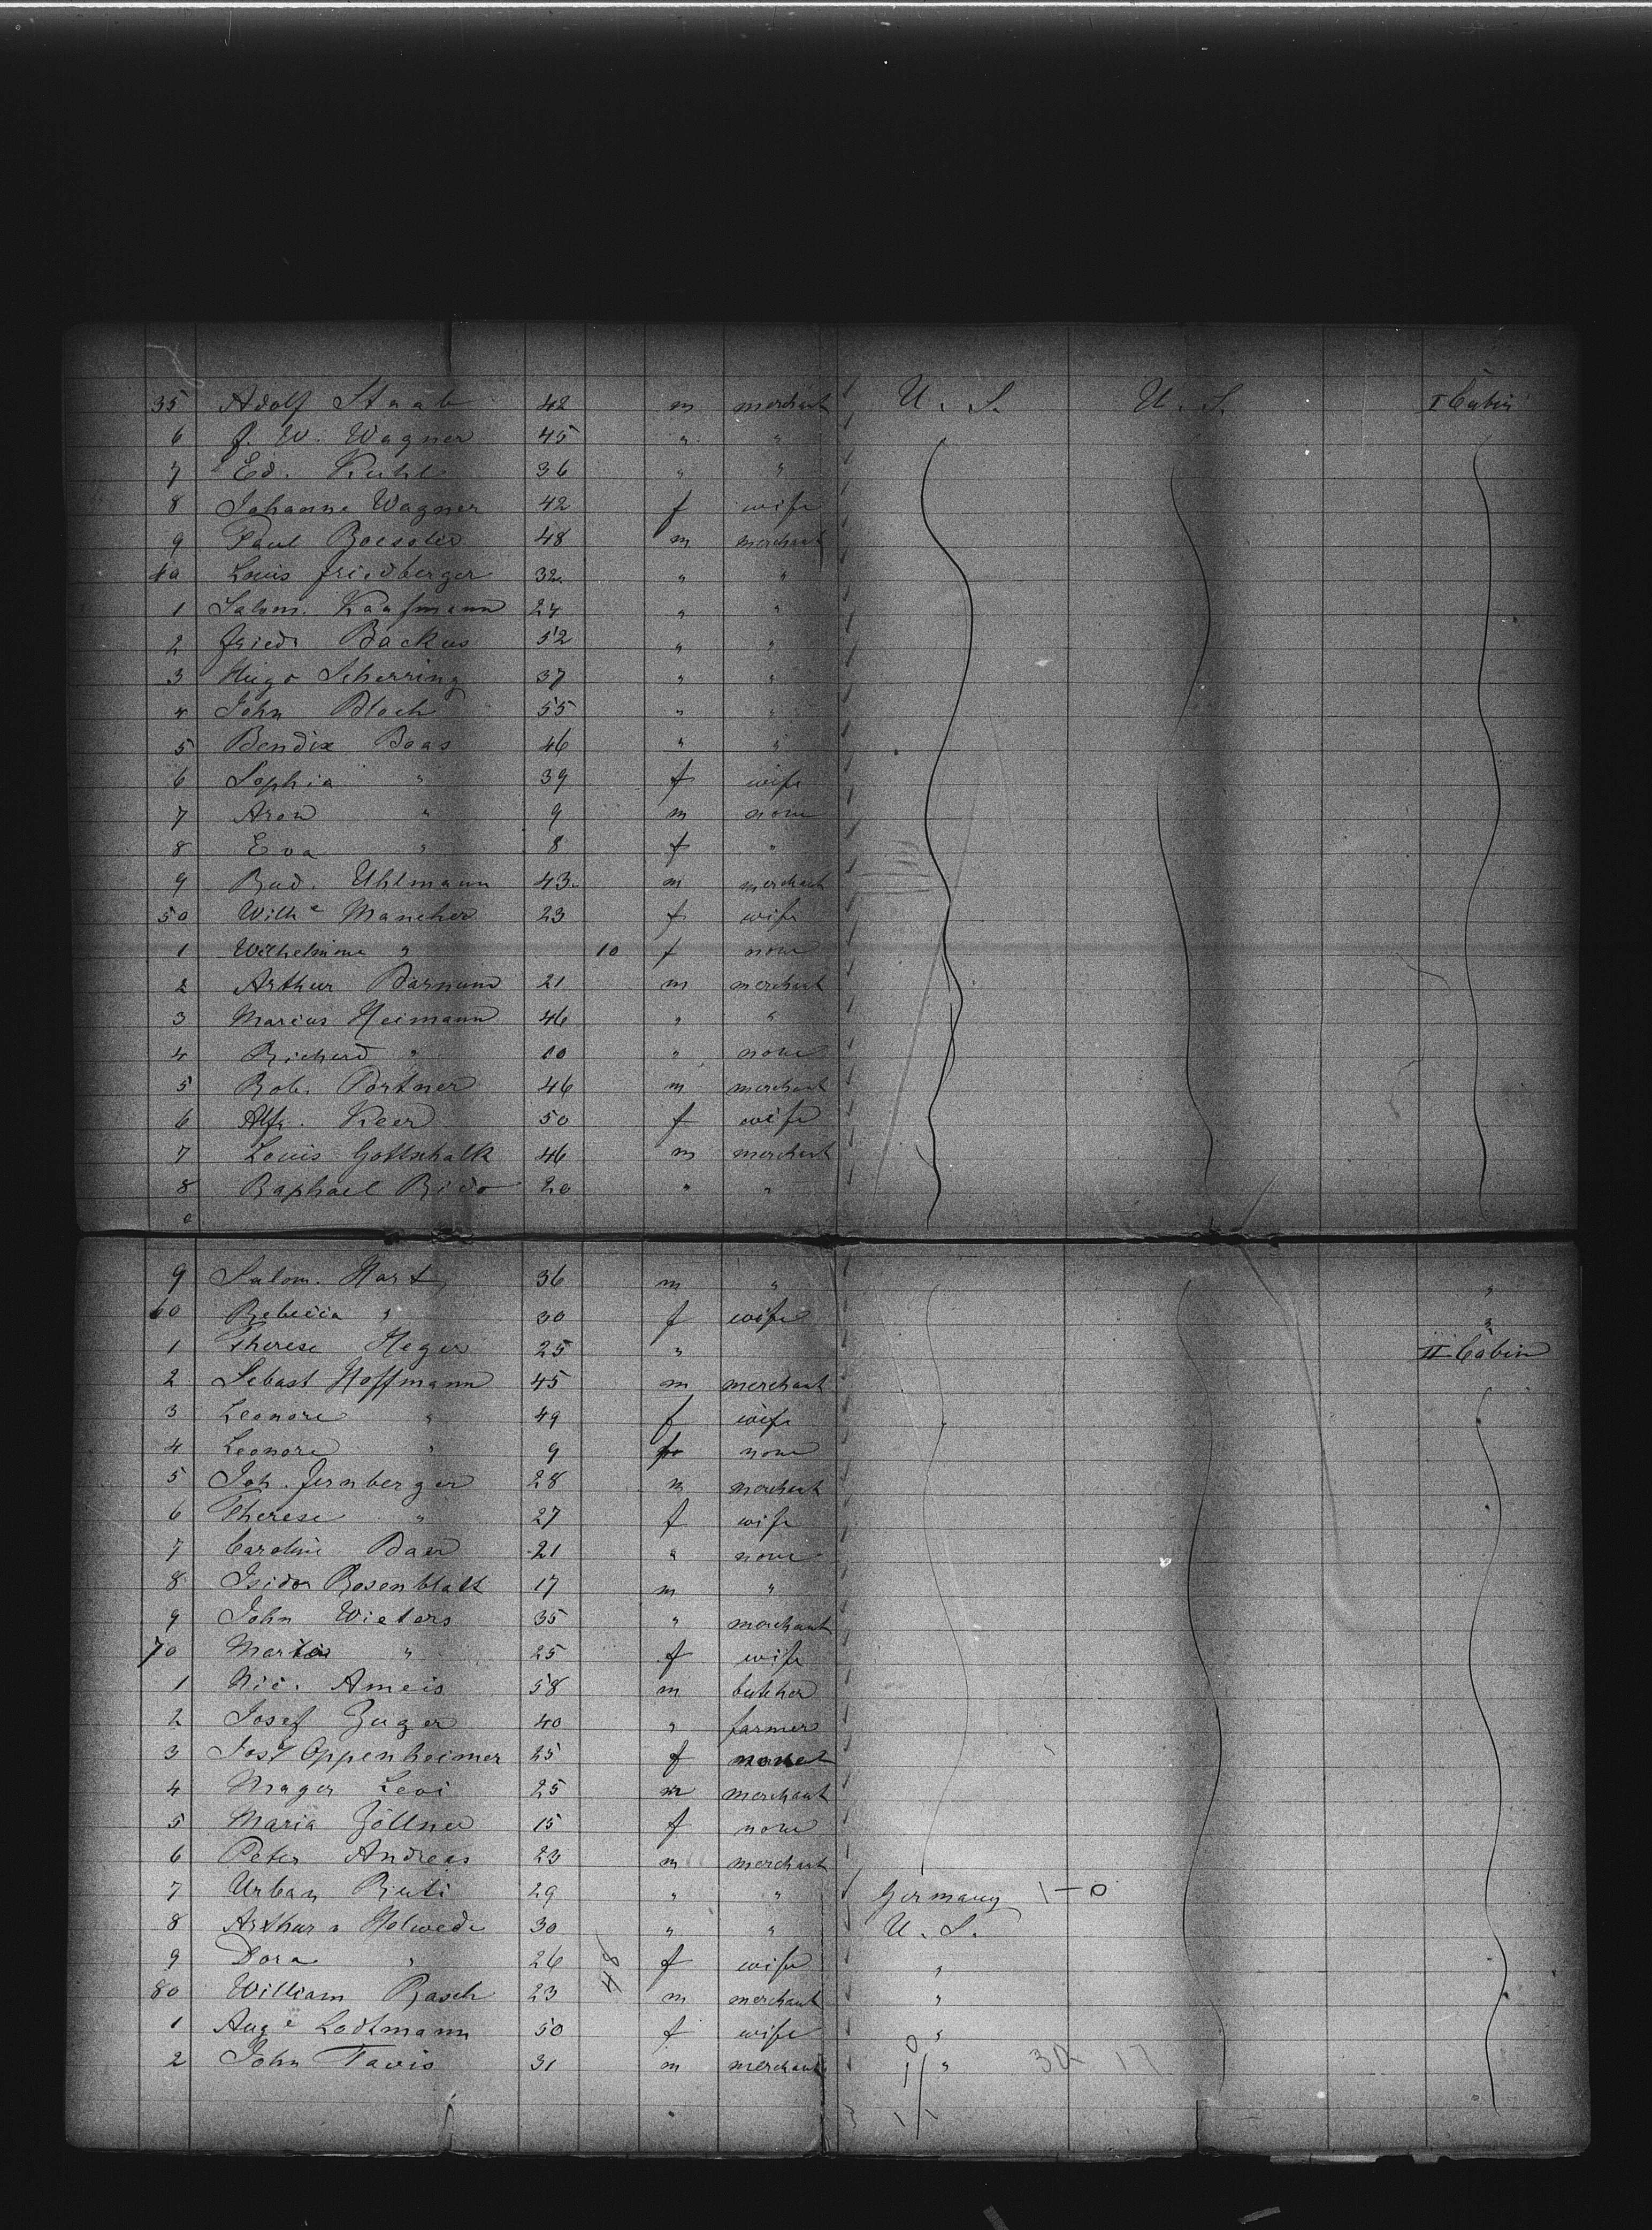 35 Adolf Staab 42 m merchant U. S. U. S. I Cabin
6 J. W. Wagner 45 " "
7 Ed. Kuhl 36 " "
8 Johanne Wagner 42 f wife
9 Paul 48 m merchant
40 Louis Friedberger 32 " "
1 Salom. Kaufmann 24 " "
2 Friedr Backus 52 " "
3 Hugo Scherring 37 " "
4 John Bloch 55 " "
5 Bendix Baas 46 " "
6 Sophia " 39 f wife
7 Aron " 9 m none
8 Eva " 8 f "
9 Rud. Uhlmann 43 m merchant
50 Wilh e Mancher 23 f wife
1 Wilhelmine " 10 f none
2 Arthur Barnum 21 m merchant
3 Marius Heimann 46 " "
4 Richard " 10 " none
5 Rob. Portner 46 m merchant
6 Alfr. Keer 50 f wife
7 Louis Gottschalk 46 m merchant
8 Raphael Rido 20 " "
9 Salom. Hart 36 m " "
60 Rebecca " 30 f wife "
1 Therese Heger 25 " II Cabin
2 Sebast Hoffmann 45 m merchant
3 Leonore " 49 f wife
4 Leonore " 9 none
5 Joh. Fernberger 28 m merchant
6 Therese " 27 f wife
7 Caroline Baer 21 " none
8 Isidor Rosenblatt 17 m "
9 John Wieters 35 " merchant
70 " 25 f wife
1 Nic. Ameis 58 m butcher
2 Josef Zuger 40 " farmer
3 Josf Oppenheimer 25 f
4 Mayer Levi 25 m merchant
5 Maria Zöllner 15 f none
6 Peter Andreas 23 m merchant
7 Urban Ruti 29 " " Germany 1-0
8 Arthur v Holwede 30 " " U. S.
9 Dora " 26 48 f wife "
80 William Rasch 23 m merchant "
1 Aug e Lodtmann 50 f wife "
2 John Favis 31 m merchant " 30 17